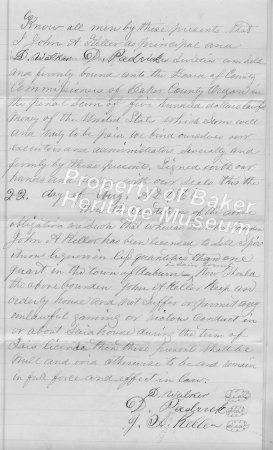 Know all men by these presents that
I John A Keller as principal and
S. Walker D. Padrick sureties are held
and firmly bound unto the Board of County
Commissioners of Baker County Oregon in
the penal Sum of five hundred dollars
money of the United States which Sum well
and truly to be paid we bind ourselves our
executors and administrators severally and
firmly by these presents, Signed with our
hands and with our seals this the
22. day Aug.
Property of Baker Heritage Museum
of the
obligation are such that whereas
John A Keller has been licensed to Sell Spir
ituous liquors in less quantities than one
quart in the town of Auburn. Now Should
the above bounden John A Keller Keep an
orderly house and not Suffer or permit any
unlawful gaming or riotous Conduct in
or about Said house during the term of
Said license then these present shall be
null and void otherwise to be and remain
in full force and effect in law.
S. Walker
D. Padrick
J. A. Keller